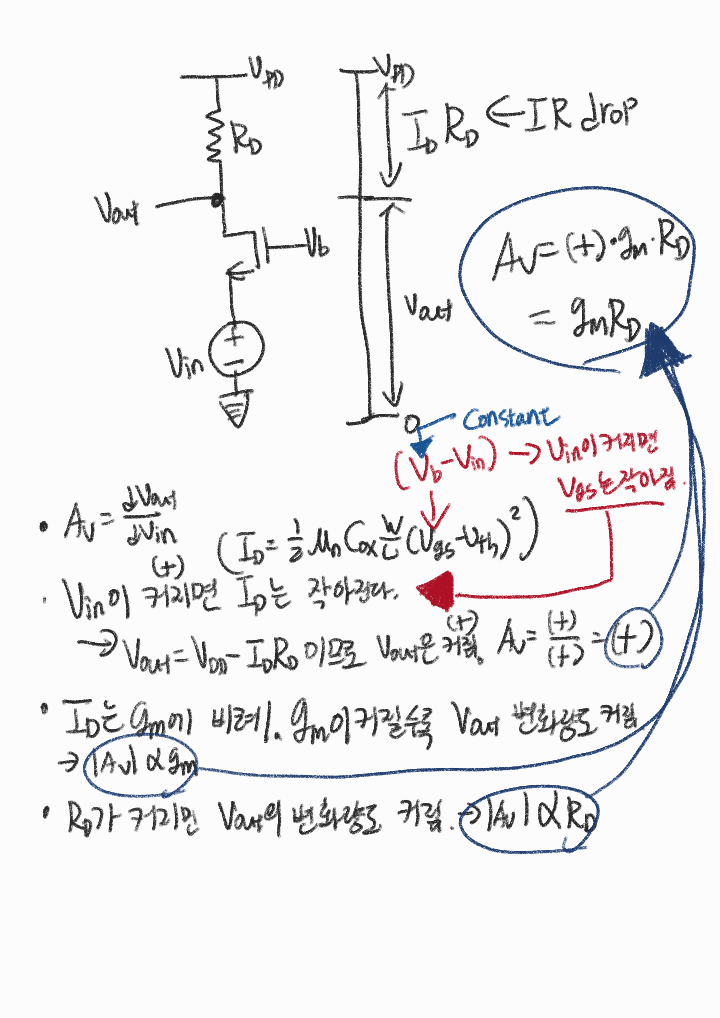 V_DD
V_DD
R_D
I_D R_D ← IR drop
Vout
Vb
A_V = (+)·g_m·R_D
= g_m R_D
Vout
Vin
+
−
0
Constant
(Vb − Vin) → Vin이 커지면
Vgs는 작아짐.
• A_V = dVout/dVin
(I_D = 1/2 μ_n Cox W/L (Vgs − Vth)²)
(+)
· Vin이 커지면 I_D는 작아진다.
(+)
→ Vout = V_DD − I_D R_D 이므로 Vout은 커짐. A_V = (+)/(+) = (+)
• I_D는 g_m에 비례/. g_m이 커질수록 Vout 변화량도 커짐
→ |A_V| ∝ g_m
• R_D가 커지면 Vout의 변화량도 커짐. → |A_V| ∝ R_D